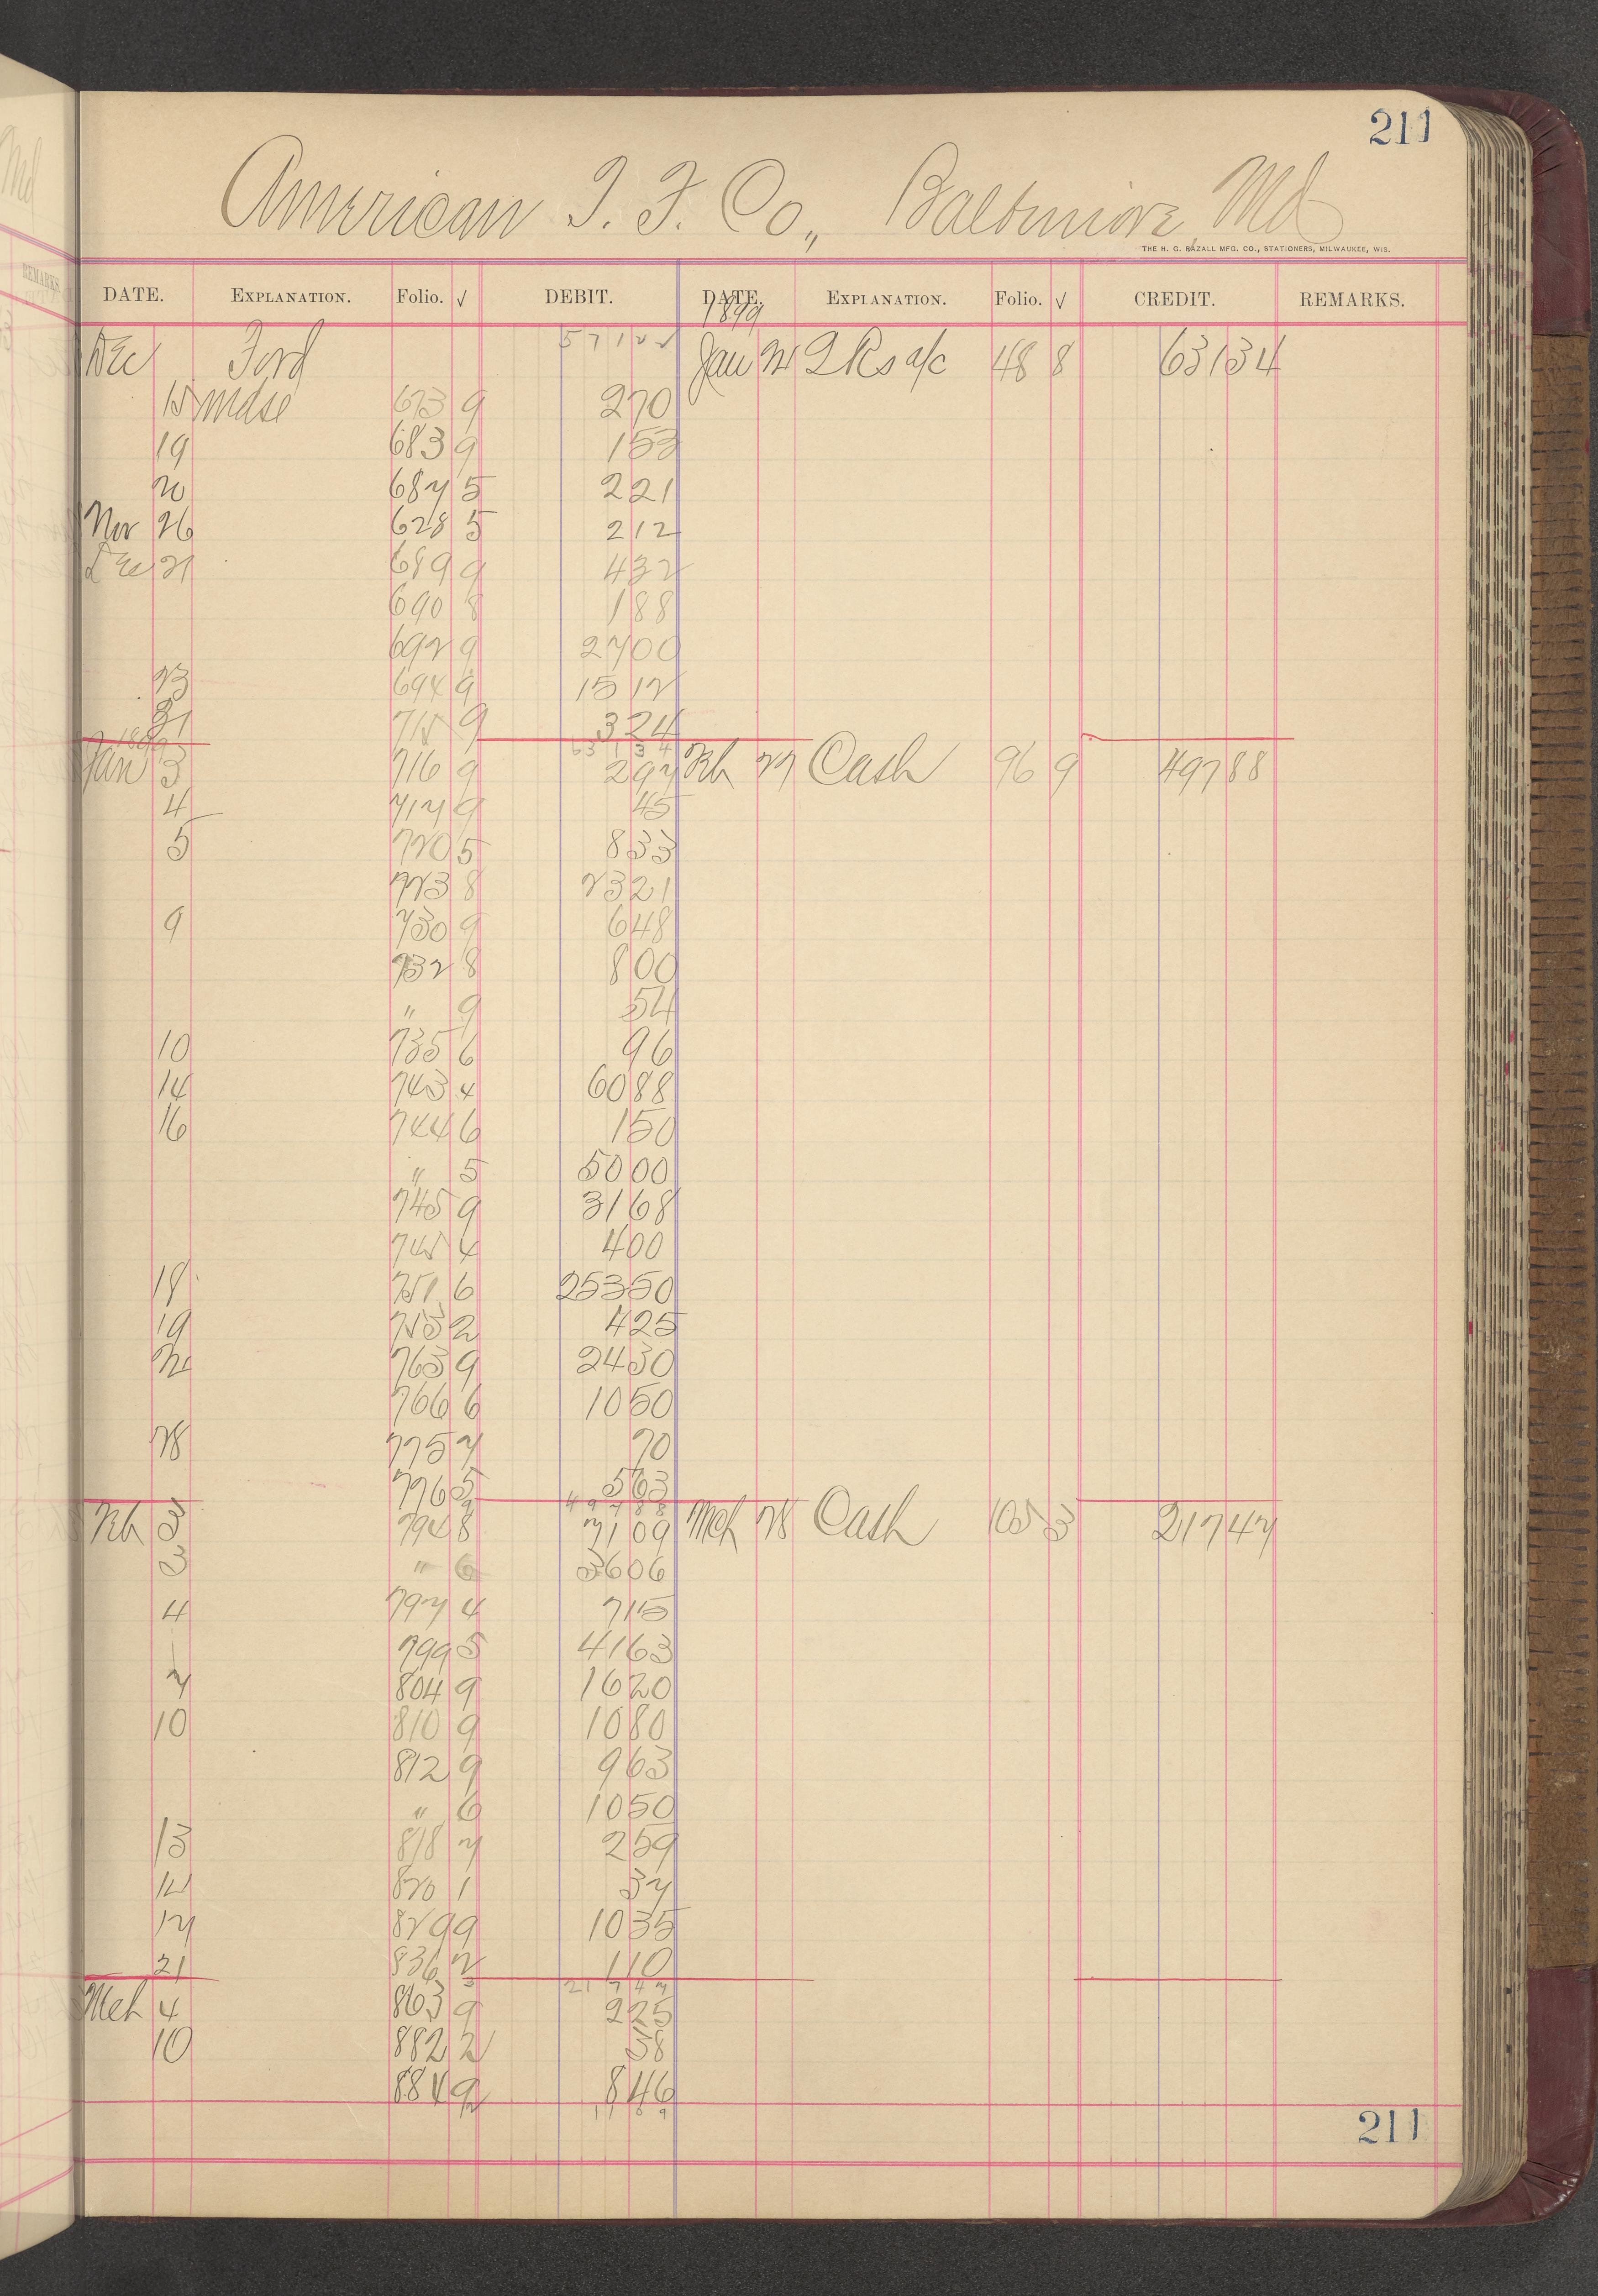 211
American T. F. Co., Baltimore, Md
THE H. G. RAZALL MFG. CO., STATIONERS, MILWAUKEE, WIS.
DATE. EXPLANATION. Folio. √ DEBIT. DATE. EXPLANATION. Folio. √ CREDIT. REMARKS.
1899
Dec Ford 571 22 Jan 24 48 8 631 34
15 Mdse 673 9 2 70
19 683 9 1 53
20 687 5 2 21
Nov 26 628 5 2 12
Dec 21 689 9 4 32
690 8 1 88
692 9 27 00
23 694 9 15 12
31 715 9 3 24
1899 631 34
Jan 3 716 9 2 97 Feb 27 Cash 96 9 497 88
4 717 9 45
5 720 5 8 33
723 8 23 21
9 730 9 6 48
732 8 8 00
" 9 54
10 735 6 96
14 743 4 60 88
16 744 6 1 50
" 5 50 00
745 9 31 68
745 4 4 00
18 751 6 253 50
19 753 2 4 25
24 763 9 24 30
766 6 10 50
28 775 7 70
776 5 5 63
497 88
Feb 3 794 8 71 09 Mch 28 Cash 105 3 217 47
3 " 6 36 06
4 797 4 7 15
799 5 41 63
7 804 9 16 20
10 810 9 10 80
812 9 9 63
" 6 10 50
13 818 7 2 59
14 820 1 37
17 829 9 10 35
21 836 2 1 10
217 47
Mch 4 863 9 2 25
10 882 2 58
884 9 8 46
11 8 9
211